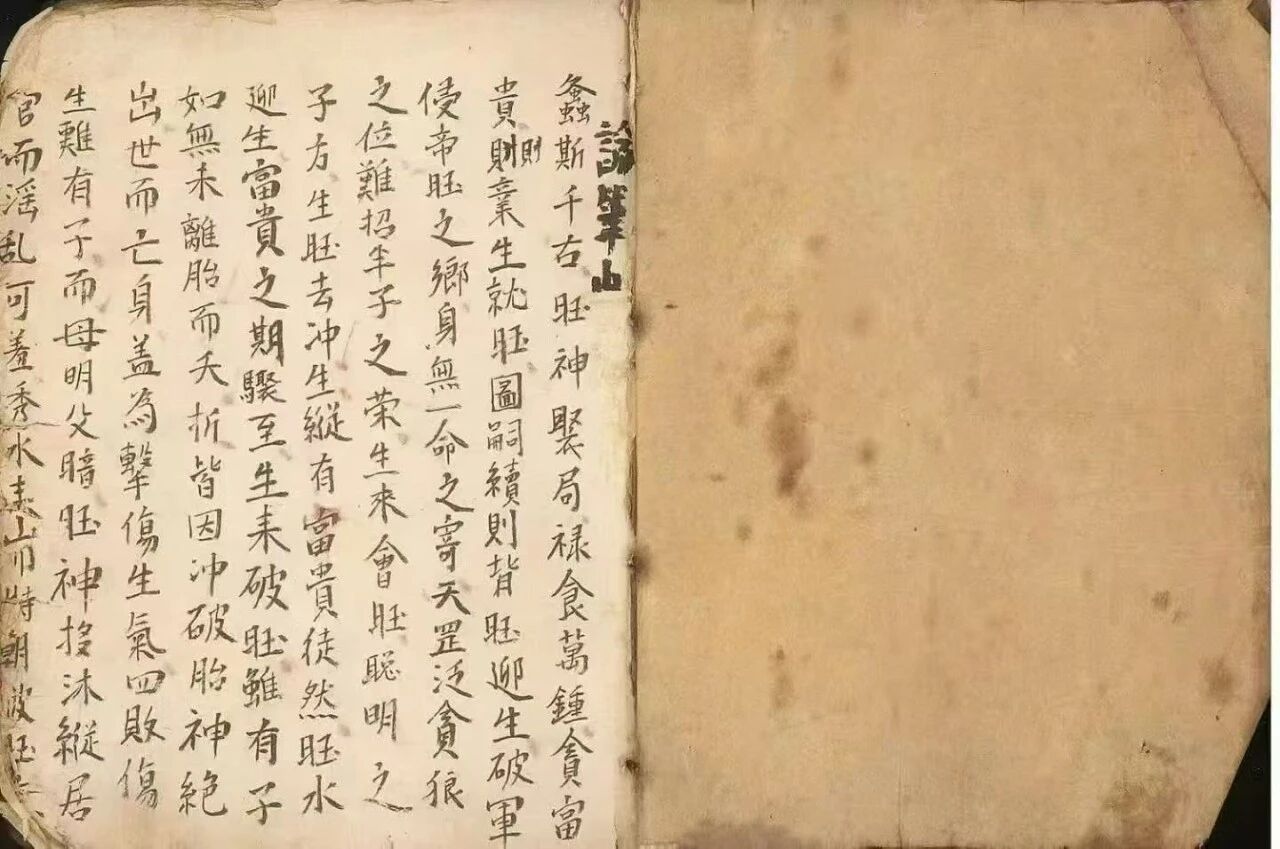 論筆山
螽斯千古旺神聚局禄食萬鍾貪富
貴則業生就旺圖嗣續則背旺迎生破軍
則
侵帝旺之鄉身無一命之寄天罡泛貪狼
之位難招半子之荣生來會旺聪明之
子方生旺去冲生縱有富貴徒然旺水
迎生富貴之期驟至生来破旺雖有子
如無未離胎而夭折皆因冲破胎神絶
出世而亡身盖為擊傷生氣四敗傷
生雖有子而母明父暗旺神投沐縱居
官而淫乱可羞秀水